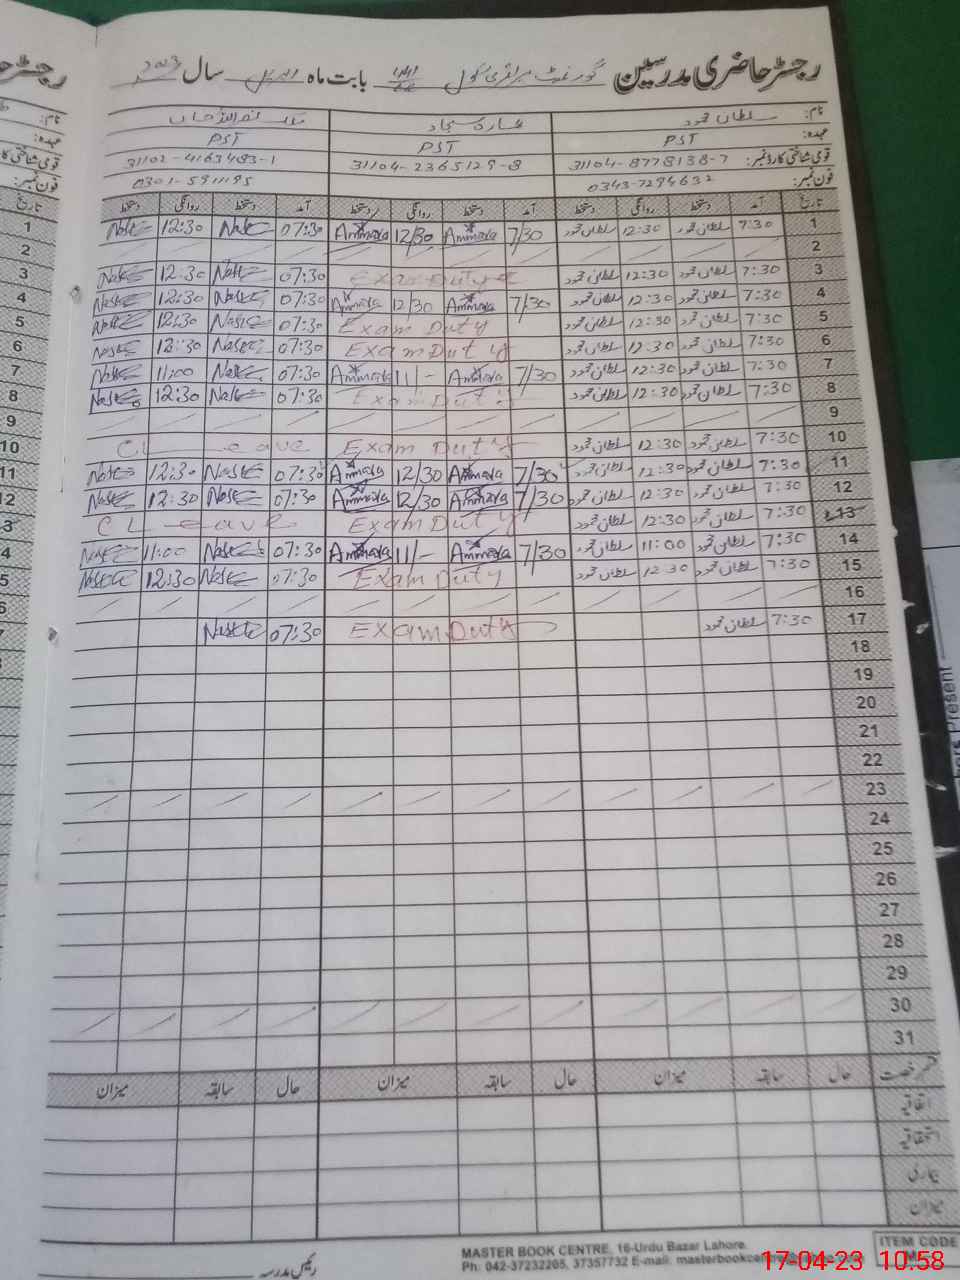 رجسٹر حاضری مدرسین گورنمنٹ پرائمری سکول بابت ماہ اپریل سال 2023
نام: سلطان محمود عمارہ سجاد
عہدہ: PST PST PST
قومی شناختی کارڈ نمبر: 31104-8778138-7 31104-2365129-8 31102-4163483-1
فون نمبر: 0343-7294632 0301-5911195
تاریخ آمد دستخط روانگی دستخط آمد دستخط روانگی دستخط آمد دستخط روانگی دستخط
1 7:30 سلطان محمود 12:30 سلطان محمود 7/30 Ammara 12/30 Ammara 07:30 12:30
2
3 7:30 سلطان محمود 12:30 سلطان محمود Exam Duty 07:30 12:30
4 7:30 سلطان محمود 12:30 سلطان محمود 7/30 Ammara 12/30 Ammara 07:30 12:30
5 7:30 سلطان محمود 12:30 سلطان محمود Exam Duty 07:30 12:30
6 7:30 سلطان محمود 12:30 سلطان محمود Exam Duty 07:30 12:30
7 7:30 سلطان محمود 12:30 سلطان محمود 7/30 Ammara 11/- Ammara 07:30 11:00
8 7:30 سلطان محمود 12:30 سلطان محمود Exam Duty 07:30 12:30
9
10 7:30 سلطان محمود 12:30 سلطان محمود Exam Duty C Leave
11 7:30 سلطان محمود 12:30 سلطان محمود 7/30 Ammara 12/30 Ammara 07:30 12:30
12 7:30 سلطان محمود 12:30 سلطان محمود 7/30 Ammara 12/30 Ammara 07:30 12:30
13 7:30 سلطان محمود 12:30 سلطان محمود Exam Duty C Leave
14 7:30 سلطان محمود 11:00 سلطان محمود 7/30 Ammara 11/- Ammara 07:30 11:00
15 7:30 سلطان محمود 12:30 سلطان محمود Exam Duty 07:30 12:30
16
17 7:30 سلطان محمود Exam Duty 07:30
18
19
20
21
22
23
24
25
26
27
28
29
30
31
قسم رخصت حال سابقہ میزان حال سابقہ میزان حال سابقہ میزان
اتفاقیہ
استحقاقیہ
بیماری
میزان
رئیس مدرسہ
MASTER BOOK CENTRE, 16-Urdu Bazar Lahore.
Ph: 042-37232205, 37357732 E-mail:
ITEM CODE
17-04-23 10:58
hers Present